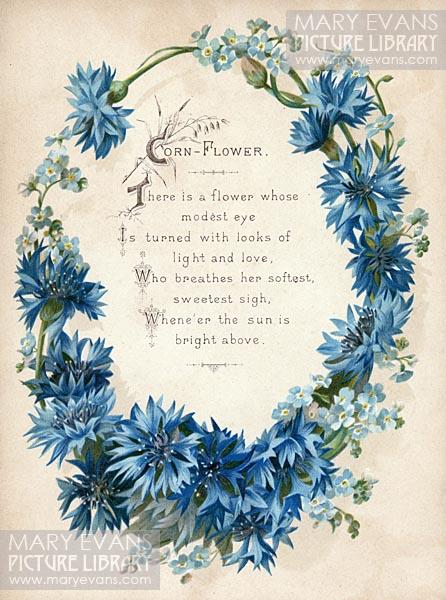 MARY EVANS
PICTURE LIBRARY
www.maryevans.com
CORN-FLOWER.
There is a flower whose
modest eye
Is turned with looks of
light and love,
Who breathes her softest,
sweetest sigh,
Whene'er the sun is
bright above.
MARY EVANS
PICTURE LIBRARY
www.maryevans.com